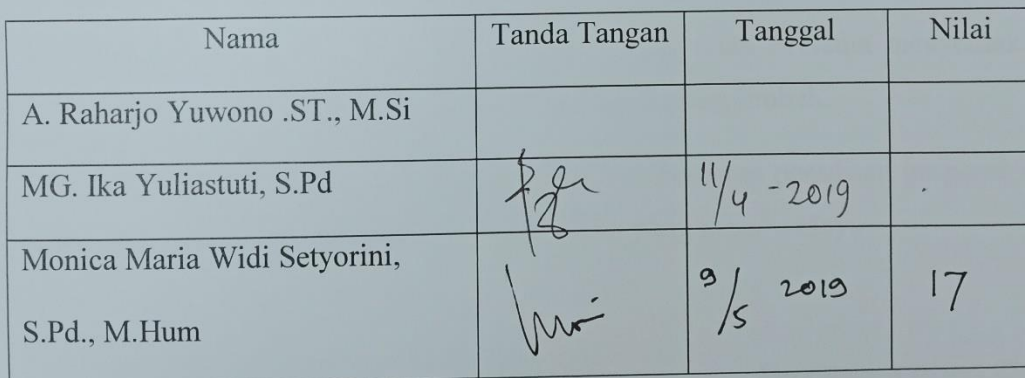 Nama Tanda Tangan Tanggal Nilai
A. Raharjo Yuwono .ST., M.Si
MG. Ika Yuliastuti, S.Pd 11/4 - 2019
Monica Maria Widi Setyorini,
9/5 2019 17
S.Pd., M.Hum